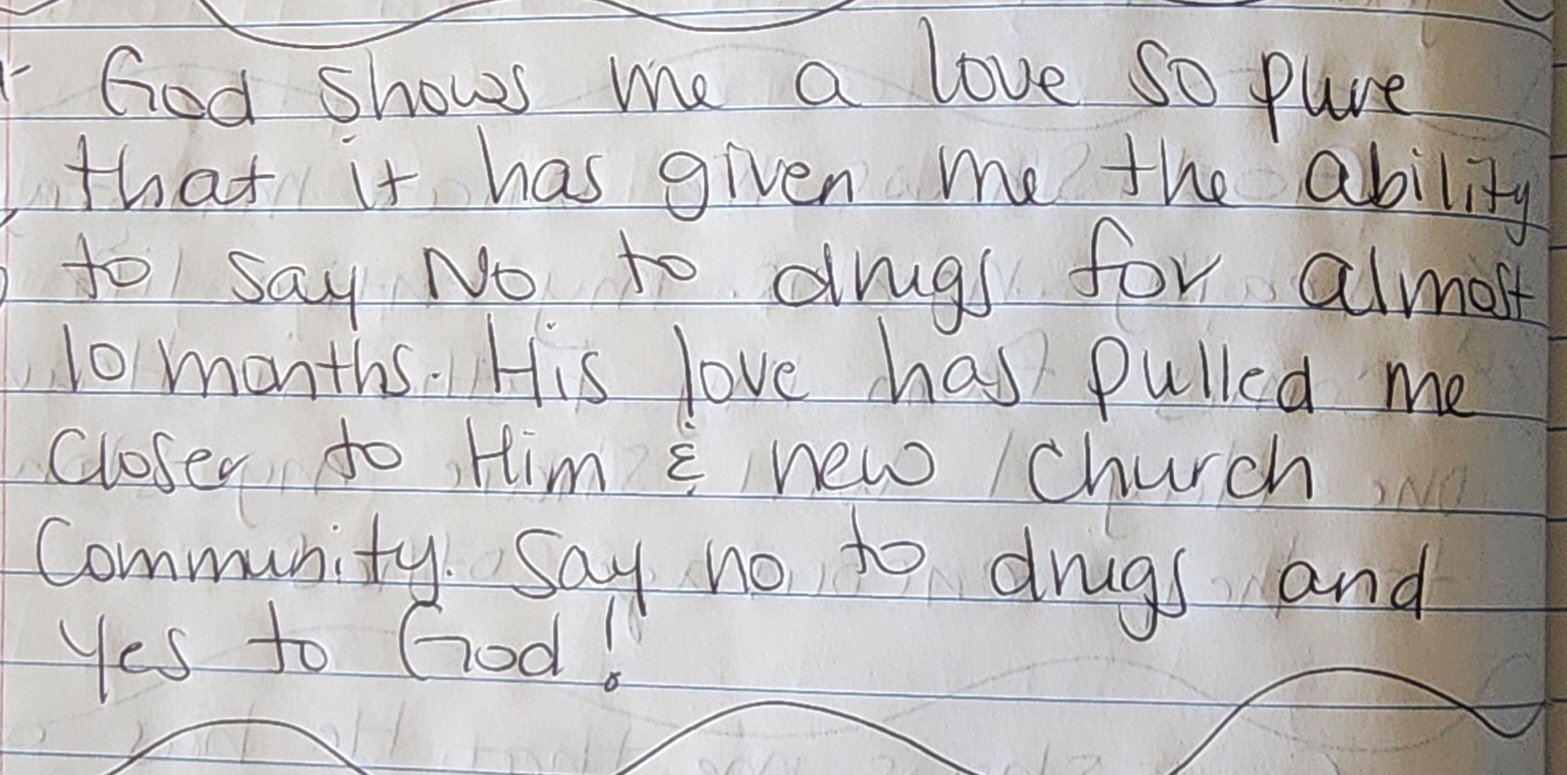 God shows me a love so pure
that it has given me the ability
to say No to drugs for almost
10 months. His love has pulled me
closer to Him & new church
Community. Say no to drugs and
yes to God!